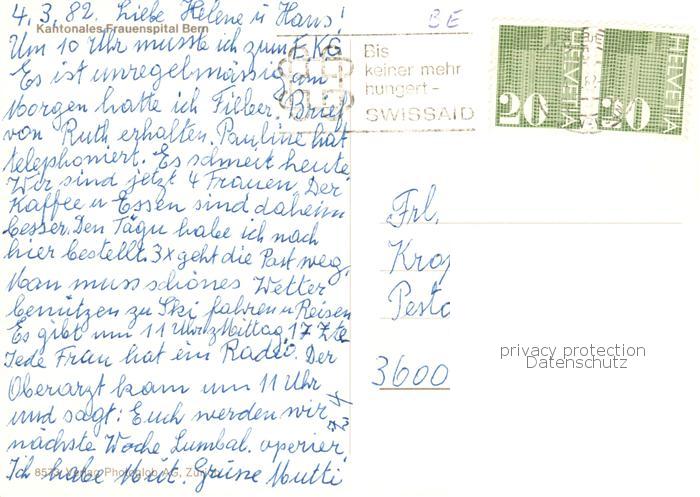 4.3.82. Liebe Helene u Hans!
Kantonales Frauenspital Bern
Um 10 Uhr musste ich zum EKG
Es ist unregelmässig am
Morgen hatte ich Fieber. Brief
von Ruth erhalten. Pauline hat
telephoniert. Es schneit heute
Wir sind jetzt 4 Frauen. Der
Kaffee u Essen sind daheim
besser. Den Tägu habe ich nach
hier bestellt. 3x geht die Post weg.
Man muss schönes Wetter
benützen zu Ski fahren u Reisen
Es gibt um 11 Uhr z Mittag 17
Jede Frau hat ein Radio. Der
Oberarzt kam um 11 Uhr
und sagt: Euch werden wir
nächste Woche Lumbal. operier.
Ich habe Mut. Grüsse Mutti
AG, Zürich
BE
Bis
keiner mehr
hungert -
SWISSAID
20 HELVETIA
20 HELVETIA
Frl.
Kro
Pesta
3600
privacy protection
Datenschutz